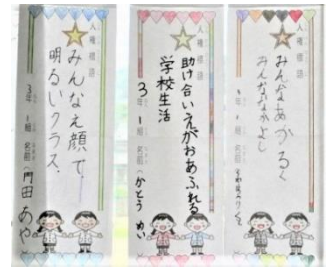 人権標語
みんなあかるく
みんななかよし
人権標語
助け合いえがおあふれる
学校生活
3年 1組 名前(かとう めい
人権標語
みんなえ顔で
明るいクラス
3年 1組 名前(門田 あや